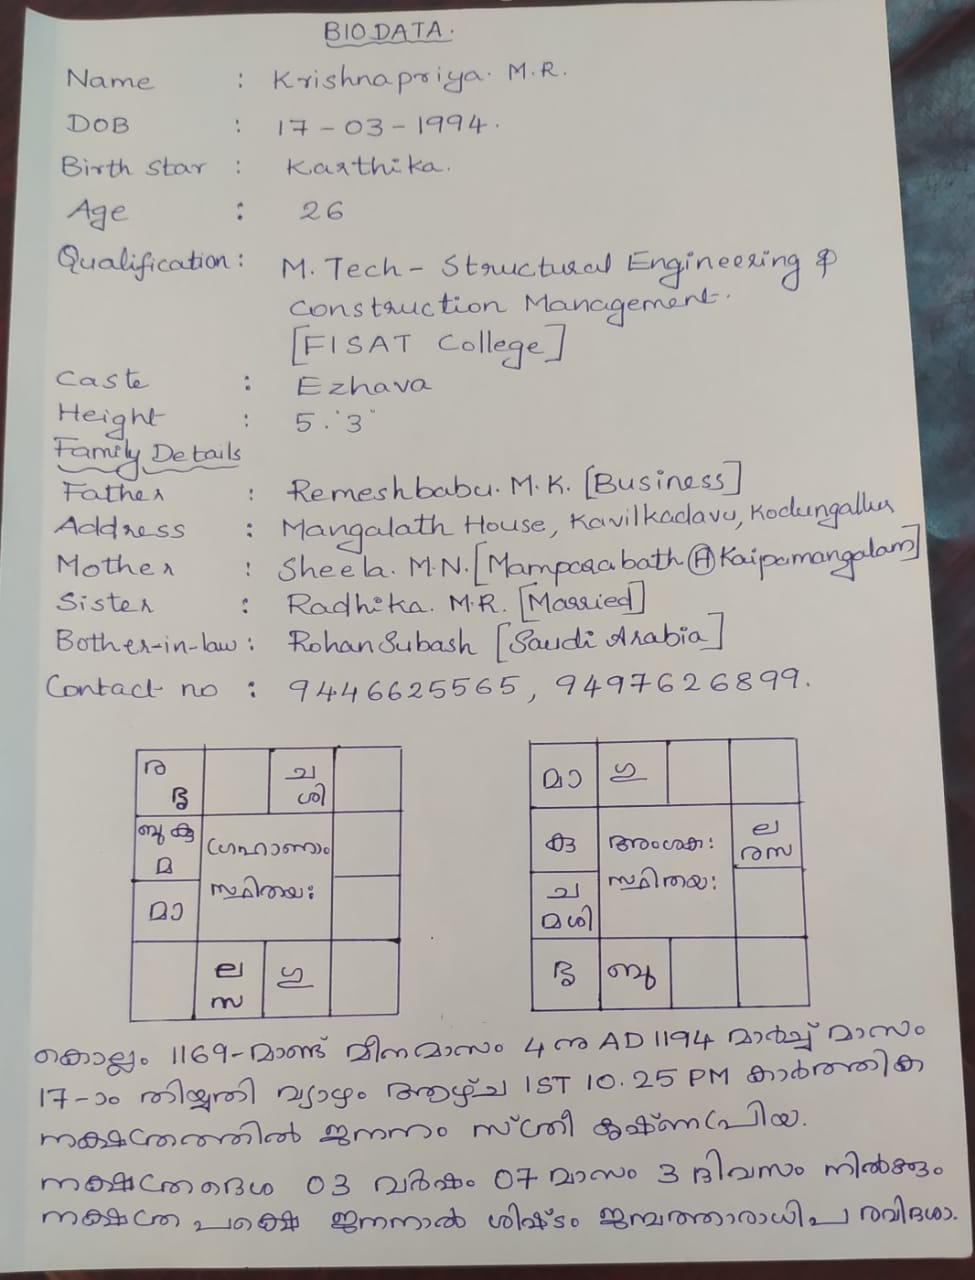 BIO DATA.
Name : Krishnapriya. M.R.
DOB : 17-03-1994.
Birth Star : Karthika.
Age : 26
Qualification: M. Tech - Structural Engineering &
Construction Management.
[FISAT College]
Caste : Ezhava
Height : 5.'3"
Family Details
Father : Remeshbabu. M.K. [Business]
Address : Mangalath House, Kavilkadavu, Kodungallur
Mother : Sheela. M.N. [Mamparabath (H) Kaipamangalam]
Sister : Radhika. M.R. [Married]
Bother-in-law : Rohan Subash [Saudi Arabia]
Contact no : 9446625565, 9497626899.
ര
ച
ഭൃ
ശി
ബു കു
മ
ഗ്രഹാണാം
സ്ഥിതയഃ
മാ
ല
സ
ഗു
മാ
ഗു
കു
അംശകഃ
സ്ഥിതയഃ
ല
ര സ
ച
മ ശി
ഭൃ
ബു
കൊല്ലം 1169-മാണ്ട് മീനമാസം 4 നു AD 1194 മാർച്ച് മാസം
17-ാം തിയ്യതി വ്യാഴം ആഴ്ച IST 10.25 PM കാർത്തിക
നക്ഷത്രത്തിൽ ജനനം സ്ത്രീ കൃഷ്ണപ്രിയ.
നക്ഷത്രദശ 03 വർഷം 07 മാസം 3 ദിവസം
നക്ഷത്ര ജനനാൽ ശിഷ്ടം രവിദശാ.